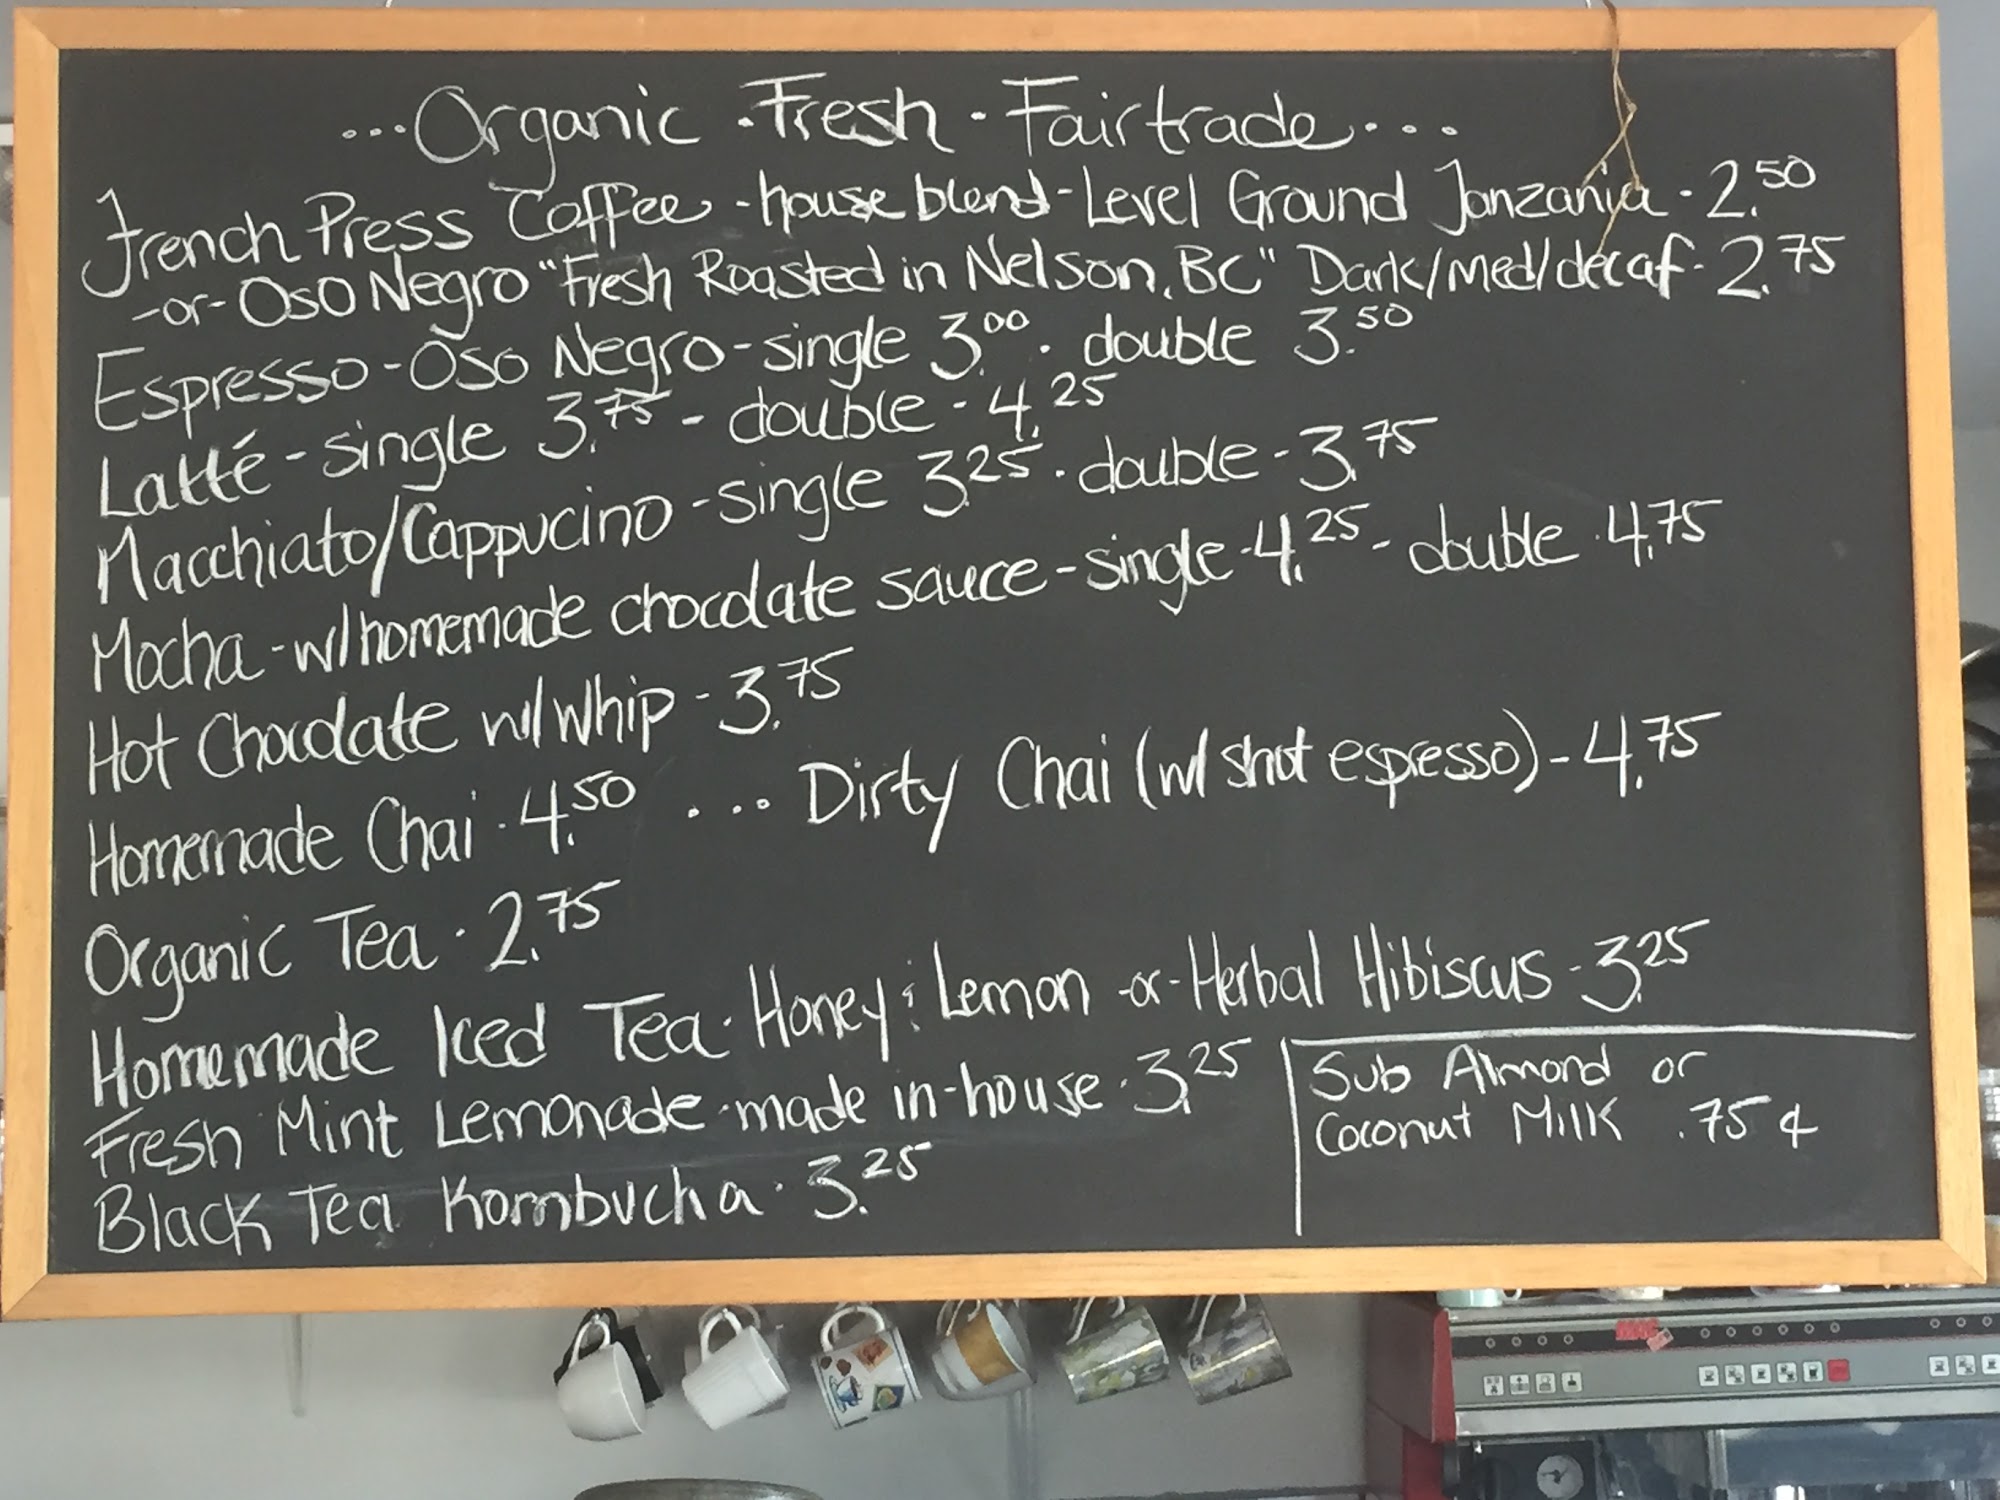 ...Organic . Fresh . Fairtrade...
French Press Coffee - house blend - Level Ground Tanzania - 2.50
-or- Oso Negro "Fresh Roasted in Nelson, BC" Dark/med/decaf - 2.75
Espresso - Oso Negro - single 3.00 . double 3.50
Latté - single 3.75 - double - 4.25
Macchiato/Cappucino - single 3.25 . double - 3.75
Mocha - w/homemade chocolate sauce - single - 4.25 - double . 4.75
Hot Chocolate w/whip - 3.75
Homemade Chai . 4.50 .... Dirty Chai (w/ shot espresso) - 4.75
Organic Tea . 2.75
Homemade Iced Tea . Honey & Lemon -or- Herbal Hibiscus - 3.25
Fresh Mint Lemonade . made in-house . 3.25
Black Tea Kombucha . 3.25
Sub Almond or
Coconut Milk .75 ¢